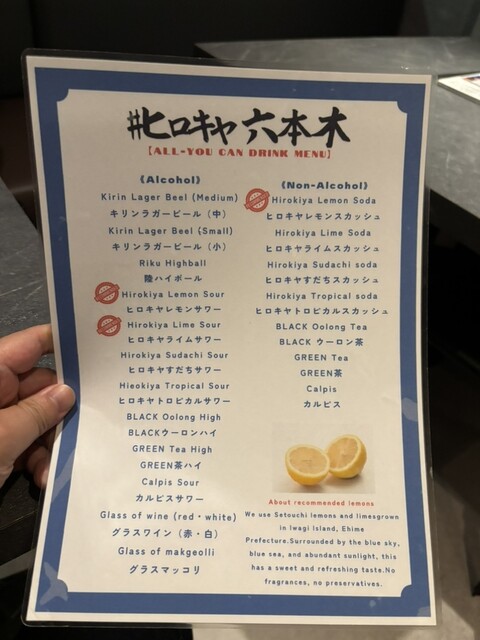 #ヒロキヤ 六本木
【ALL-YOU CAN DRINK MENU】
《Alcohol》
Kirin Lager Beel (Medium)
キリンラガービール（中）
Kirin Lager Beel (Small)
キリンラガービール（小）
Riku Highball
陸ハイボール
Hirokiya Lemon Sour
ヒロキヤレモンサワー
Hirokiya Lime Sour
ヒロキヤライムサワー
Hirokiya Sudachi Sour
ヒロキヤすだちサワー
Hieokiya Tropical Sour
ヒロキヤトロピカルサワー
BLACK Oolong High
BLACKウーロンハイ
GREEN Tea High
GREEN茶ハイ
Calpis Sour
カルピスサワー
Glass of wine (red・white)
グラスワイン（赤・白）
Glass of makgeolli
グラスマッコリ
《Non-Alcohol》
Hirokiya Lemon Soda
ヒロキヤレモンスカッシュ
Hirokiya Lime Soda
ヒロキヤライムスカッシュ
Hirokiya Sudachi soda
ヒロキヤすだちスカッシュ
Hirokiya Tropical soda
ヒロキヤトロピカルスカッシュ
BLACK Oolong Tea
BLACK ウーロン茶
GREEN Tea
GREEN茶
Calpis
カルピス
About recommended lemons
We use Setouchi lemons and limesgrown
in Iwagi Island, Ehime
Prefecture.Surrounded by the blue sky,
blue sea, and abundant sunlight, this
has a sweet and refreshing taste.No
fragrances, no preservatives.